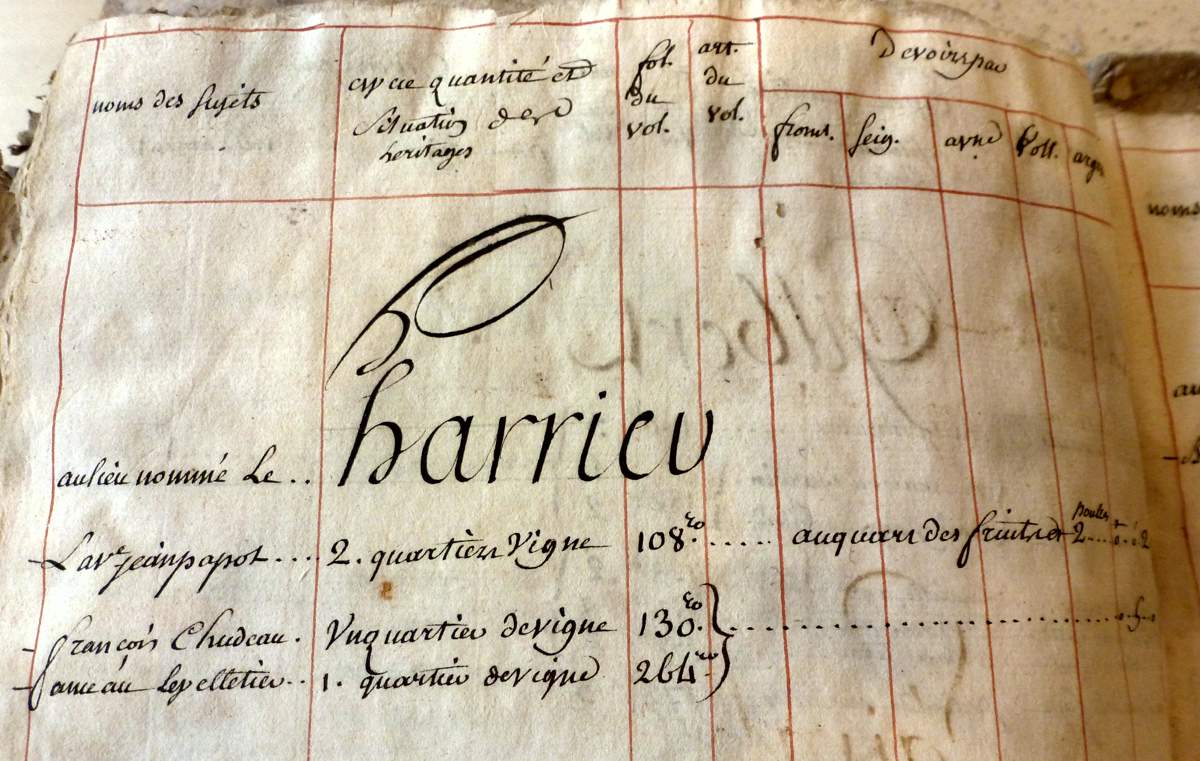 noms des sujets
espece quantité et
situation des
heritages
fol.
du
vol.
art.
du
vol.
Devoirs par
from.t
seig.
avne
voll.
arge
noms
au lieu nommé Le .. Charrieu
La v.e jean papot .... 2. quartiers vigne 108 ro ..... au quars des fruits et 2 poules
françois Chudeau. Un quartier de vigne 130 ro
Lepelletier.. 1. quartier de vigne 264 ro